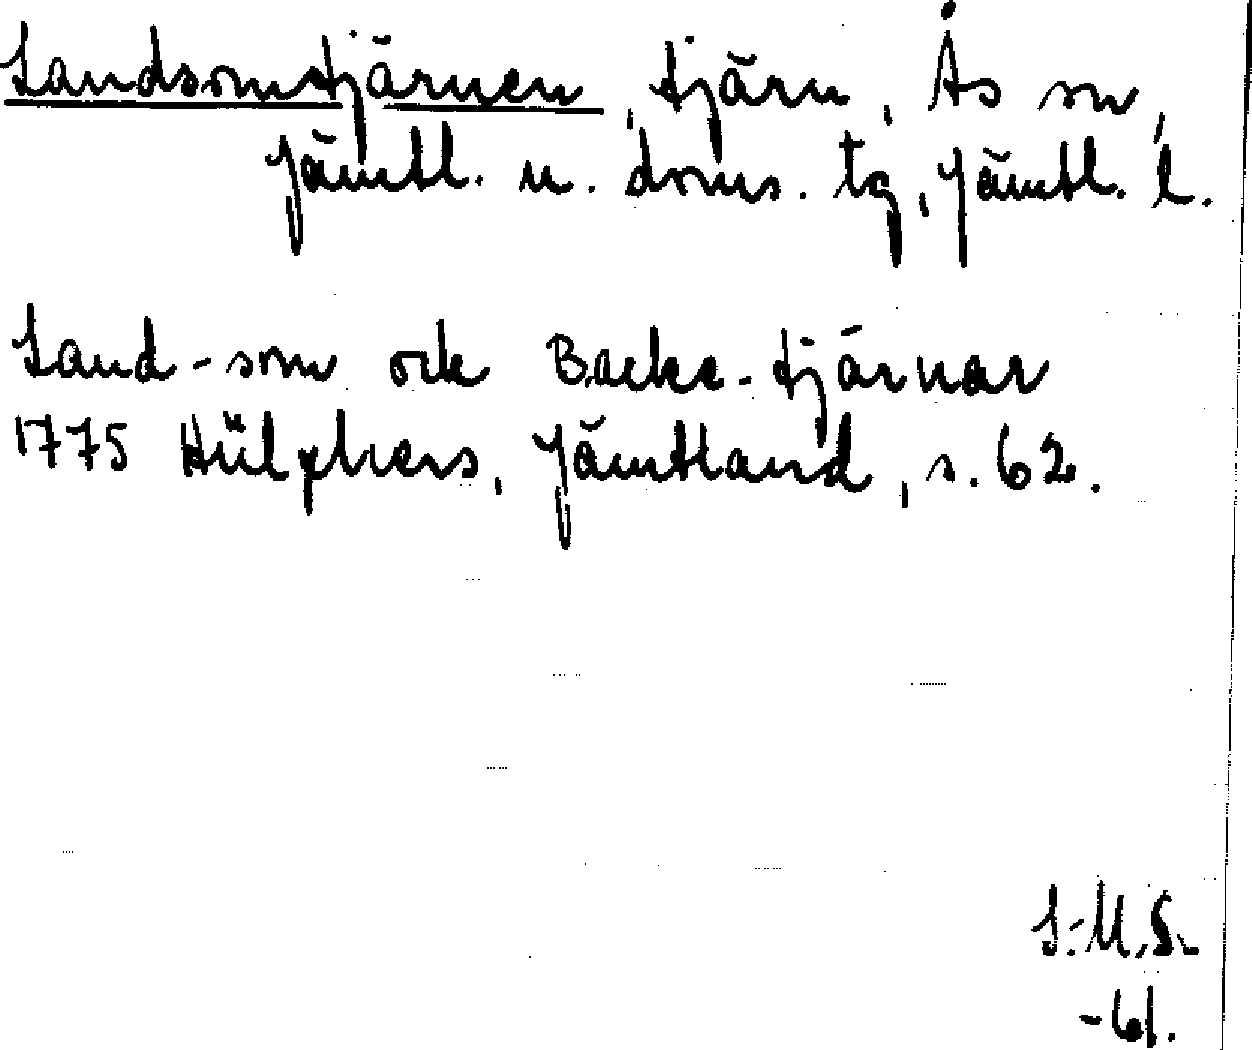 Landsomstjärnen, tjärn, Ås sn,
Jämtl. n. doms. tg, Jämtl. l.
Land-som och Backe-tjärnar
1775 Hülphers, Jämtland, s. 62.
I.-M.S.
-61.